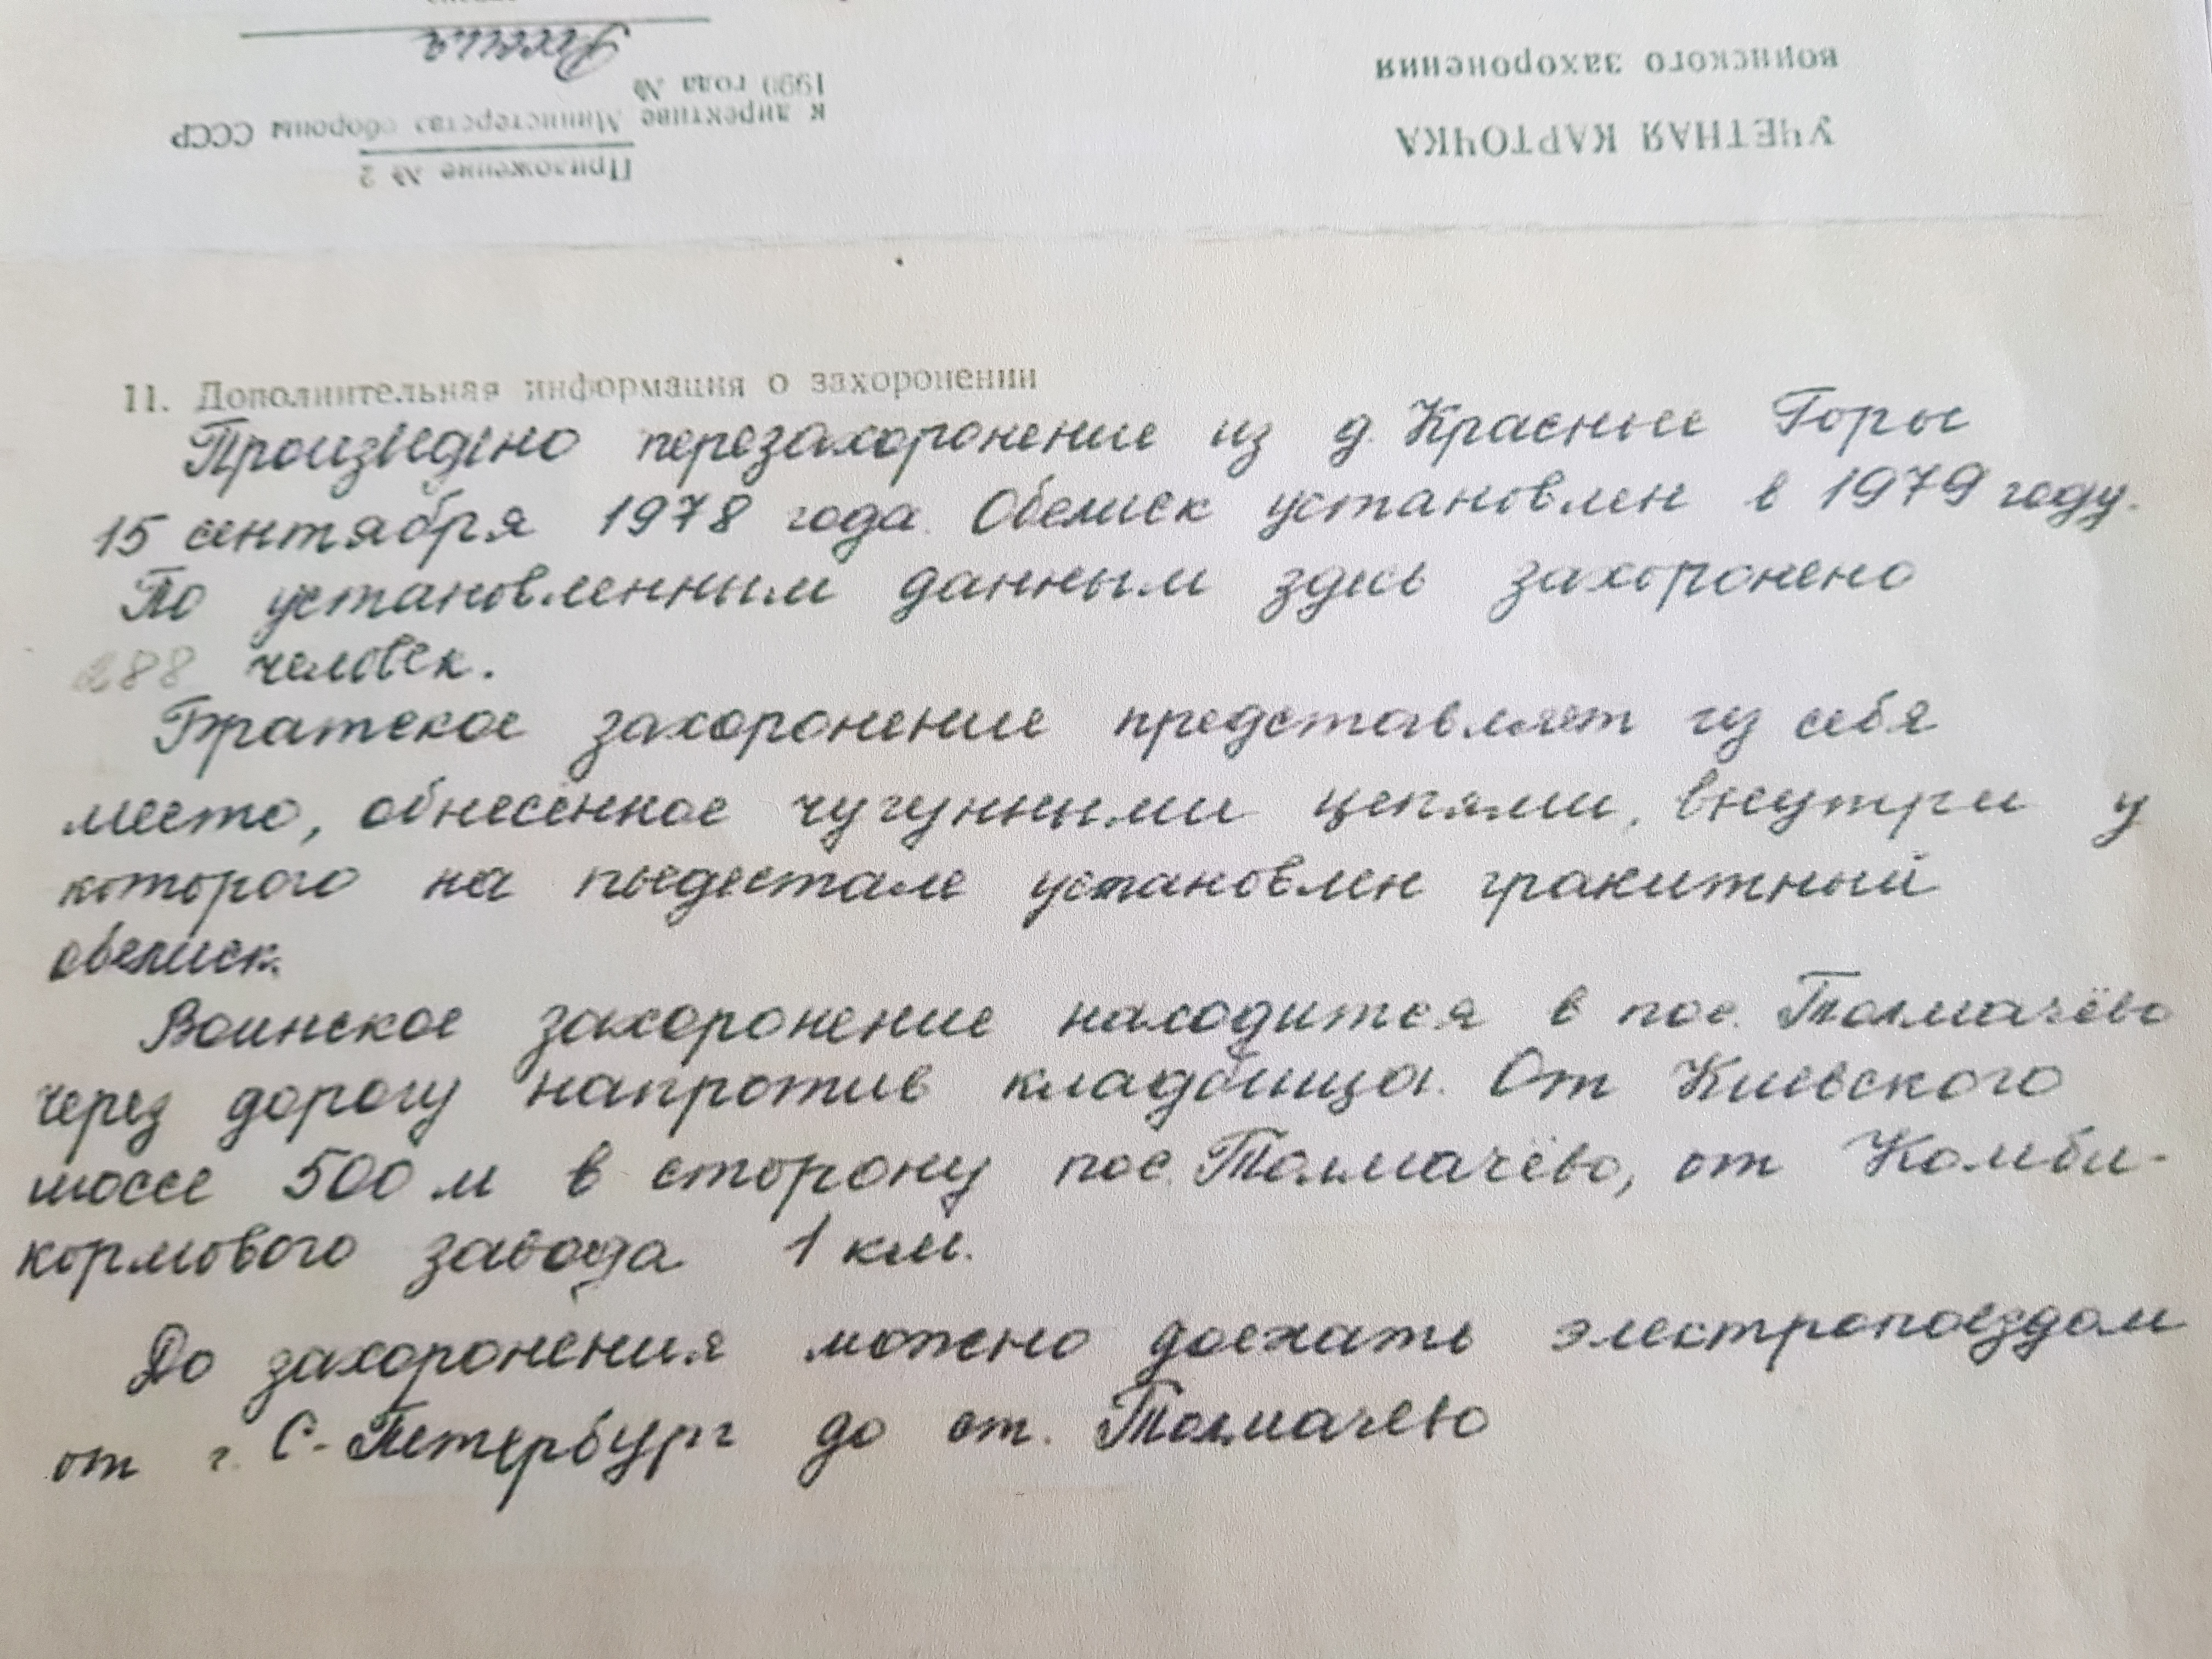 УЧЕТНАЯ КАРТОЧКА
воинского захоронения
Приложение № 2
к директиве Министерства обороны СССР
1990 года №
Россия
11. Дополнительная информация о захоронении
Произведено перезахоронение из д. Красные Горы
15 сентября 1978 года. Обелиск установлен в 1979 году.
По установленным данным здесь захоронено
288 человек.
Братское захоронение представляет из себя
место, обнесённое чугунными цепями, внутри у
которого на пьедестале установлен гранитный
обелиск.
Воинское захоронение находится в пос. Толмачёво
через дорогу напротив кладбища. От Киевского
шоссе 500 м в сторону пос. Толмачёво, от Комби-
кормового завода 1 км.
До захоронения можно доехать электропоездом
от г. С-Петербург до ст. Толмачево